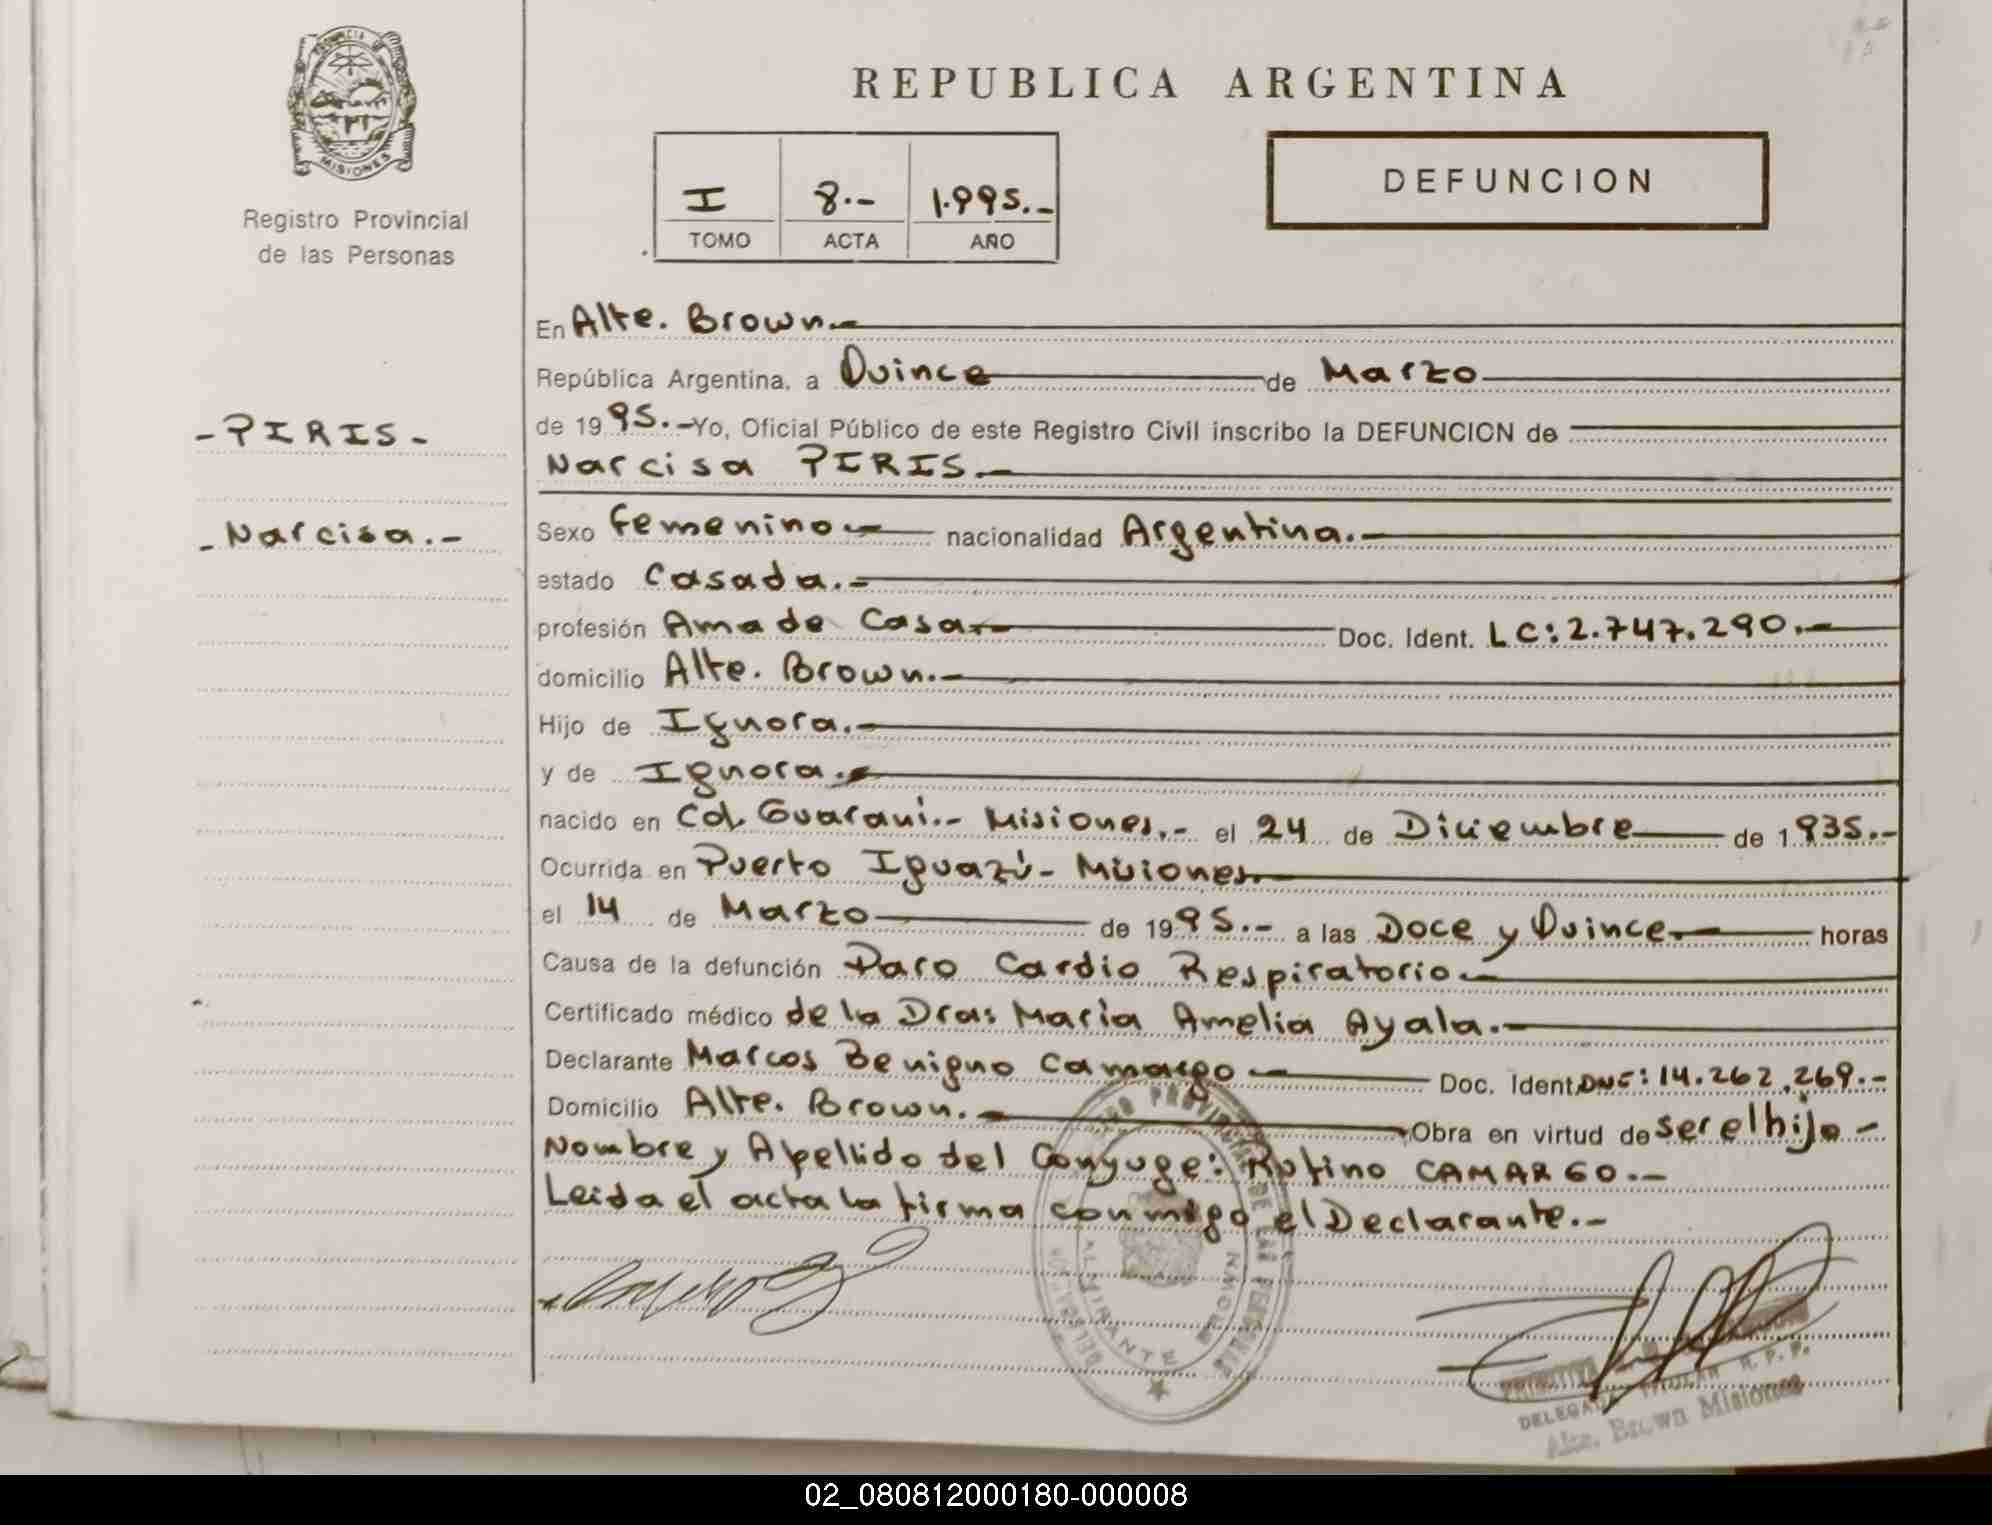 PROVINCIA DE
MISIONES
Registro Provincial
de las Personas
- PIRIS -
- Narcisa.-
REPUBLICA ARGENTINA
I 8.- 1.995.-
TOMO ACTA AÑO
DEFUNCION
En Alte. Brown.-
República Argentina, a Quince de Marzo
de 1995.- Yo, Oficial Público de este Registro Civil inscribo la DEFUNCION de
Narcisa PIRIS.-
Sexo Femenino.- nacionalidad Argentina.-
estado Casada.-
profesión Ama de Casa.- Doc. Ident. LC: 2.747.290.-
domicilio Alte. Brown.-
Hijo de Ignora.-
y de Ignora.-
nacido en Col. Guaraní.- Misiones.- el 24 de Diciembre de 1.935.-
Ocurrida en Puerto Iguazú- Misiones.-
el 14 de Marzo de 1995.- a las Doce y Quince.- horas
Causa de la defunción Paro Cardio Respiratorio.-
Certificado médico de la Dra: María Amelia Ayala.-
Declarante Marcos Benigno Camargo.- Doc. Ident. DNI: 14.262.269.-
Domicilio Alte. Brown.- Obra en virtud de ser el hijo-
Nombre y Apellido del Conyuge: Rufino CAMARGO.-
Leida el acta la firma conmigo el Declarante.-
REGISTRO PROVINCIAL DE LAS PERSONAS
DELEGACION
ALMIRANTE BROWN
DELEGADA TITULAR R. P. P.
Alte. Brown Misiones
02_080812000180-000008